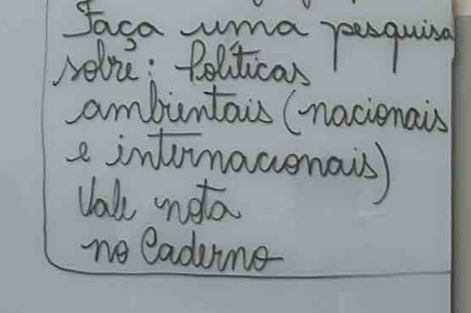 Faça uma pesquisa
sobre: Políticas
ambientais (nacionais
e internacionais)
Vale nota
no Caderno